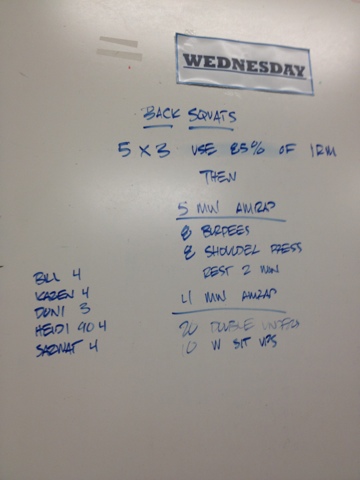 WEDNESDAY
BACK SQUATS
5 X 3 USE 85% OF 1RM
THEN
5 MIN AMRAP
8 BURPEES
8 SHOULDER PRESS
REST 2 MIN
4 MIN AMRAP
20 DOUBLE UNDERS
10 W SIT UPS
BILL 4
KAREN 4
DUNI 3
HEIDI 90 4
SARWAT 4